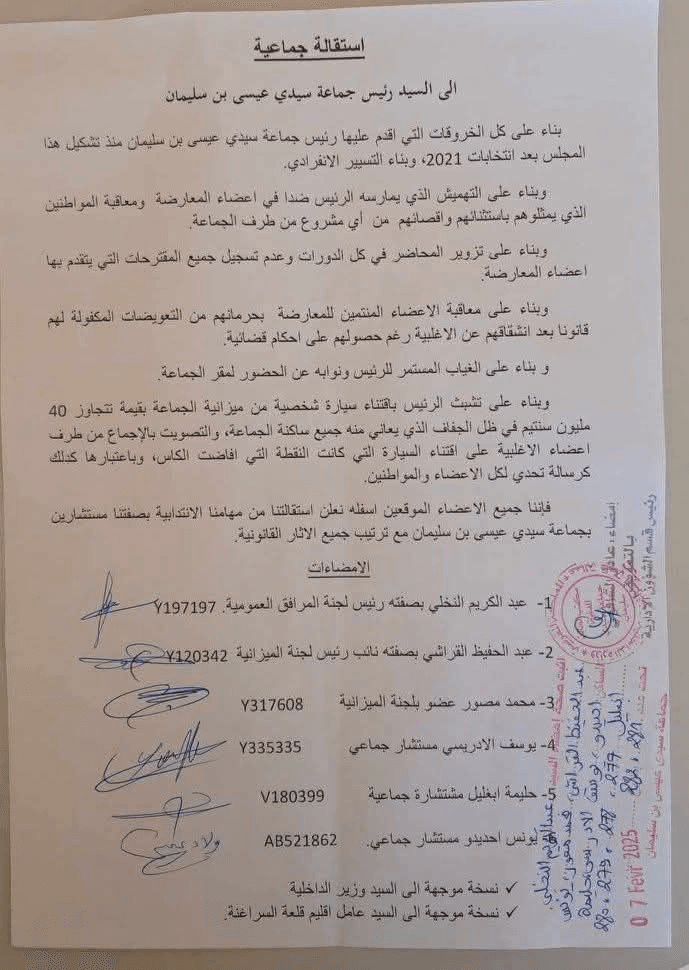 استقالة جماعية
الى السيد رئيس جماعة سيدي عيسى بن سليمان
بناء على كل الخروقات التي اقدم عليها رئيس جماعة سيدي عيسى بن سليمان منذ تشكيل هذا
المجلس بعد انتخابات 2021، وبناء التسيير الانفرادي.
وبناء على التهميش الذي يمارسه الرئيس ضدا في اعضاء المعارضة ومعاقبة المواطنين
الذي يمثلوهم باستثنائهم واقصائهم من أي مشروع من طرف الجماعة.
وبناء على تزوير المحاضر في كل الدورات وعدم تسجيل جميع المقترحات التي يتقدم بها
اعضاء المعارضة.
وبناء على معاقبة الاعضاء المنتمين للمعارضة بحرمانهم من التعويضات المكفولة لهم
قانونا بعد انشقاقهم عن الاغلبية رغم حصولهم على احكام قضائية.
و بناء على الغياب المستمر للرئيس ونوابه عن الحضور لمقر الجماعة.
وبناء على تشبث الرئيس باقتناء سيارة شخصية من ميزانية الجماعة بقيمة تتجاوز 40
مليون سنتيم في ظل الجفاف الذي يعاني منه جميع ساكنة الجماعة، والتصويت بالإجماع من طرف
اعضاء الاغلبية على اقتناء السيارة التي كانت النقطة التي افاضت الكاس، وباعتبارها كدلك
كرسالة تحدي لكل الاعضاء والمواطنين.
فإننا جميع الاعضاء الموقعين اسفله نعلن استقالتنا من مهامنا الانتدابية بصفتنا مستشارين
بجماعة سيدي عيسى بن سليمان مع ترتيب جميع الاثار القانونية.
الامضاءات
1- عبد الكريم النخلي بصفته رئيس لجنة المرافق العمومية. Y197197
2- عبد الحفيظ القراشي بصفته نائب رئيس لجنة الميزانية Y120342
3- محمد مصور عضو بلجنة الميزانية Y317608
4- يوسف الادريسي مستشار جماعي Y335335
5- حليمة ابغليل مشتشارة جماعية V180399
يونس احديدو مستشار جماعي. AB521862
✓ نسخة موجهة الى السيد وزير الداخلية
✓ نسخة موجهة الى السيد عامل اقليم قلعة السراغنة.
رئيس قسم الشؤون الادارية
0 7 Fevr 2025
جماعة سيدي عيسى بن سليمان